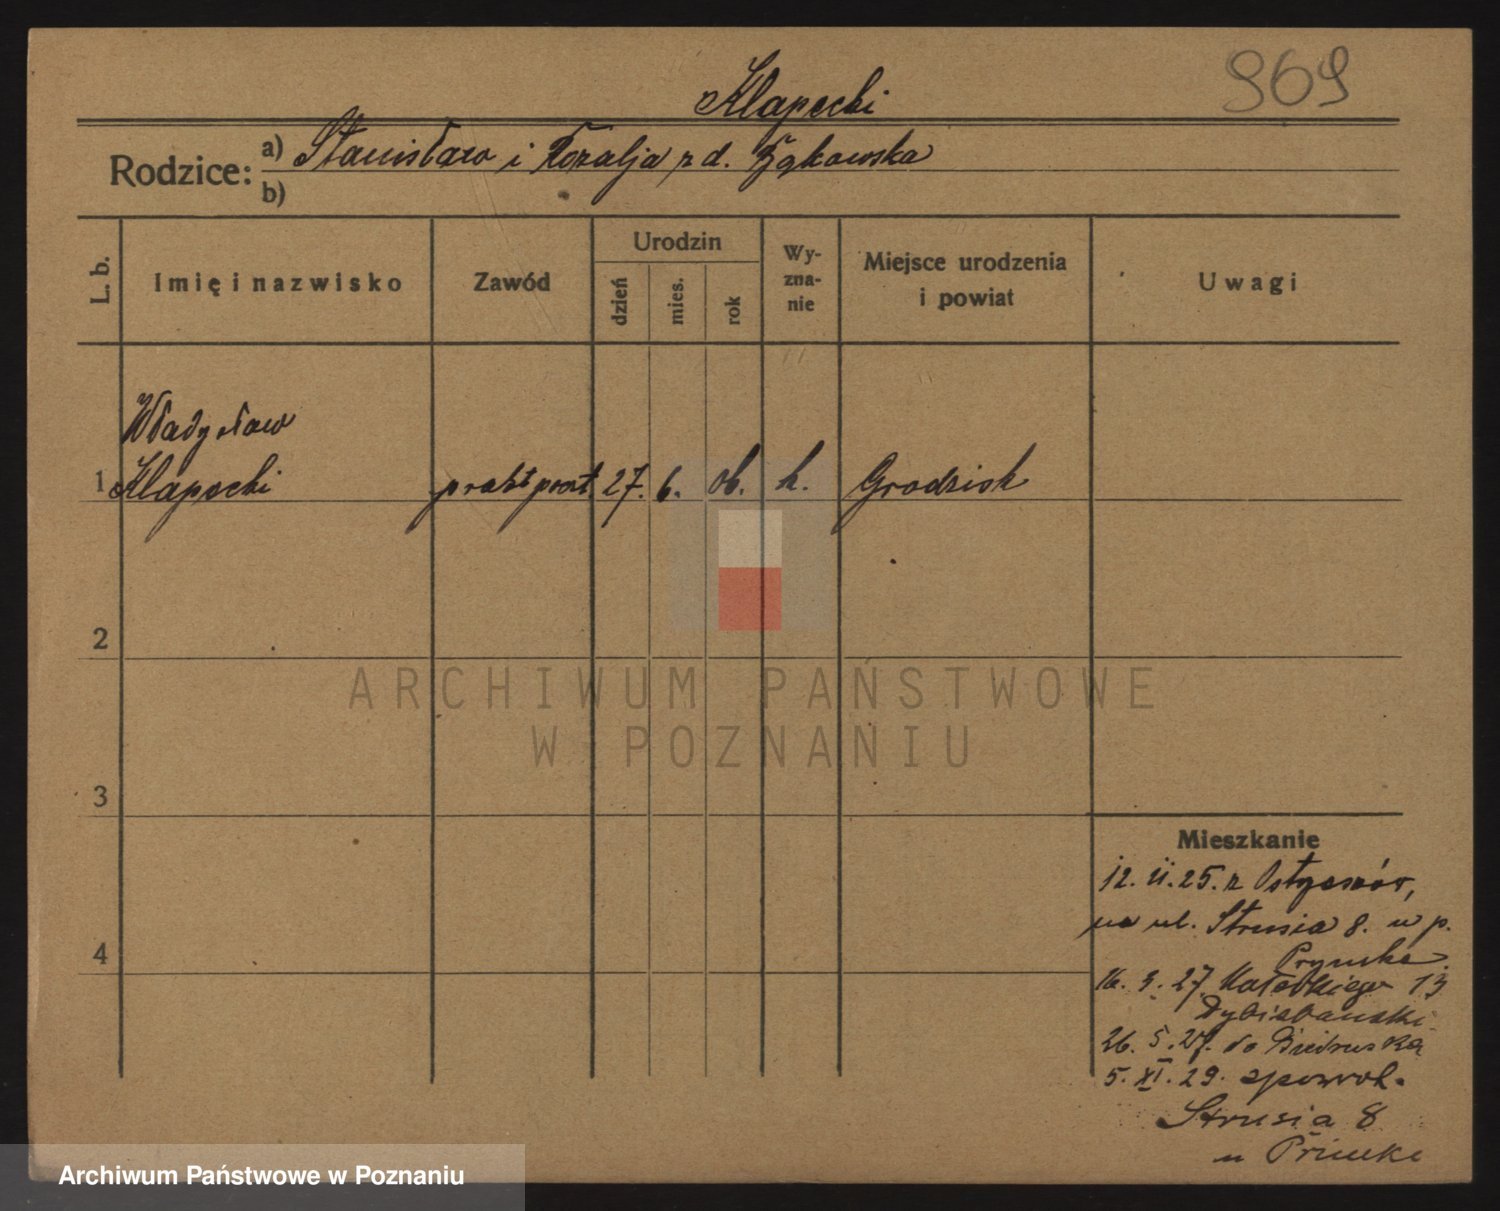 969
Klapecki
Rodzice: a) Stanisław i Rozalja z d. Bąkowska
b)
L. b.
Imię i nazwisko
Zawód
Urodzin
dzień
mies.
rok
Wy-
zna-
nie
Miejsce urodzenia
i powiat
Uwagi
Władysław
1 Klapecki prakt poczt. 27. 6. 06. k. Grodzisk
2
3
4
Mieszkanie
12. II. 25. z
na ul. Strusia 8. u p.
16. 3. 27 Małeckiego 13
26. 5. 27. do Biedruska
5. XI. 29. spowrot.
Strusia 8
u
ARCHIWUM PAŃSTWOWE
W POZNANIU
Archiwum Państwowe w Poznaniu